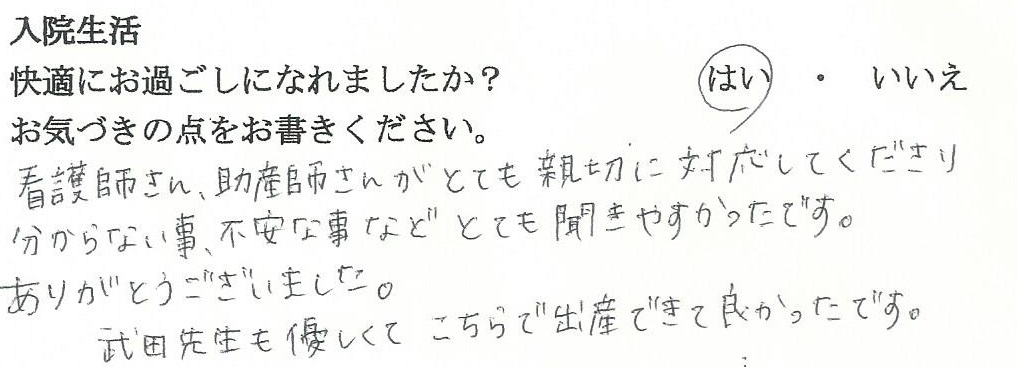 入院生活
快適にお過ごしになれましたか？ はい ・ いいえ
お気づきの点をお書きください。
看護師さん、助産師さんがとても親切に対応してくださり
分からない事、不安な事などとても聞きやすかったです。
ありがとうございました。
武田先生も優しくてこちらで出産できて良かったです。